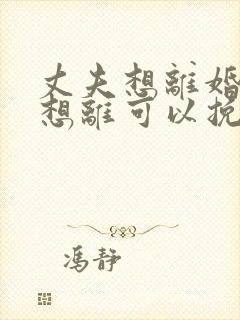 丈夫想離婚
想離可以挽
馮靜